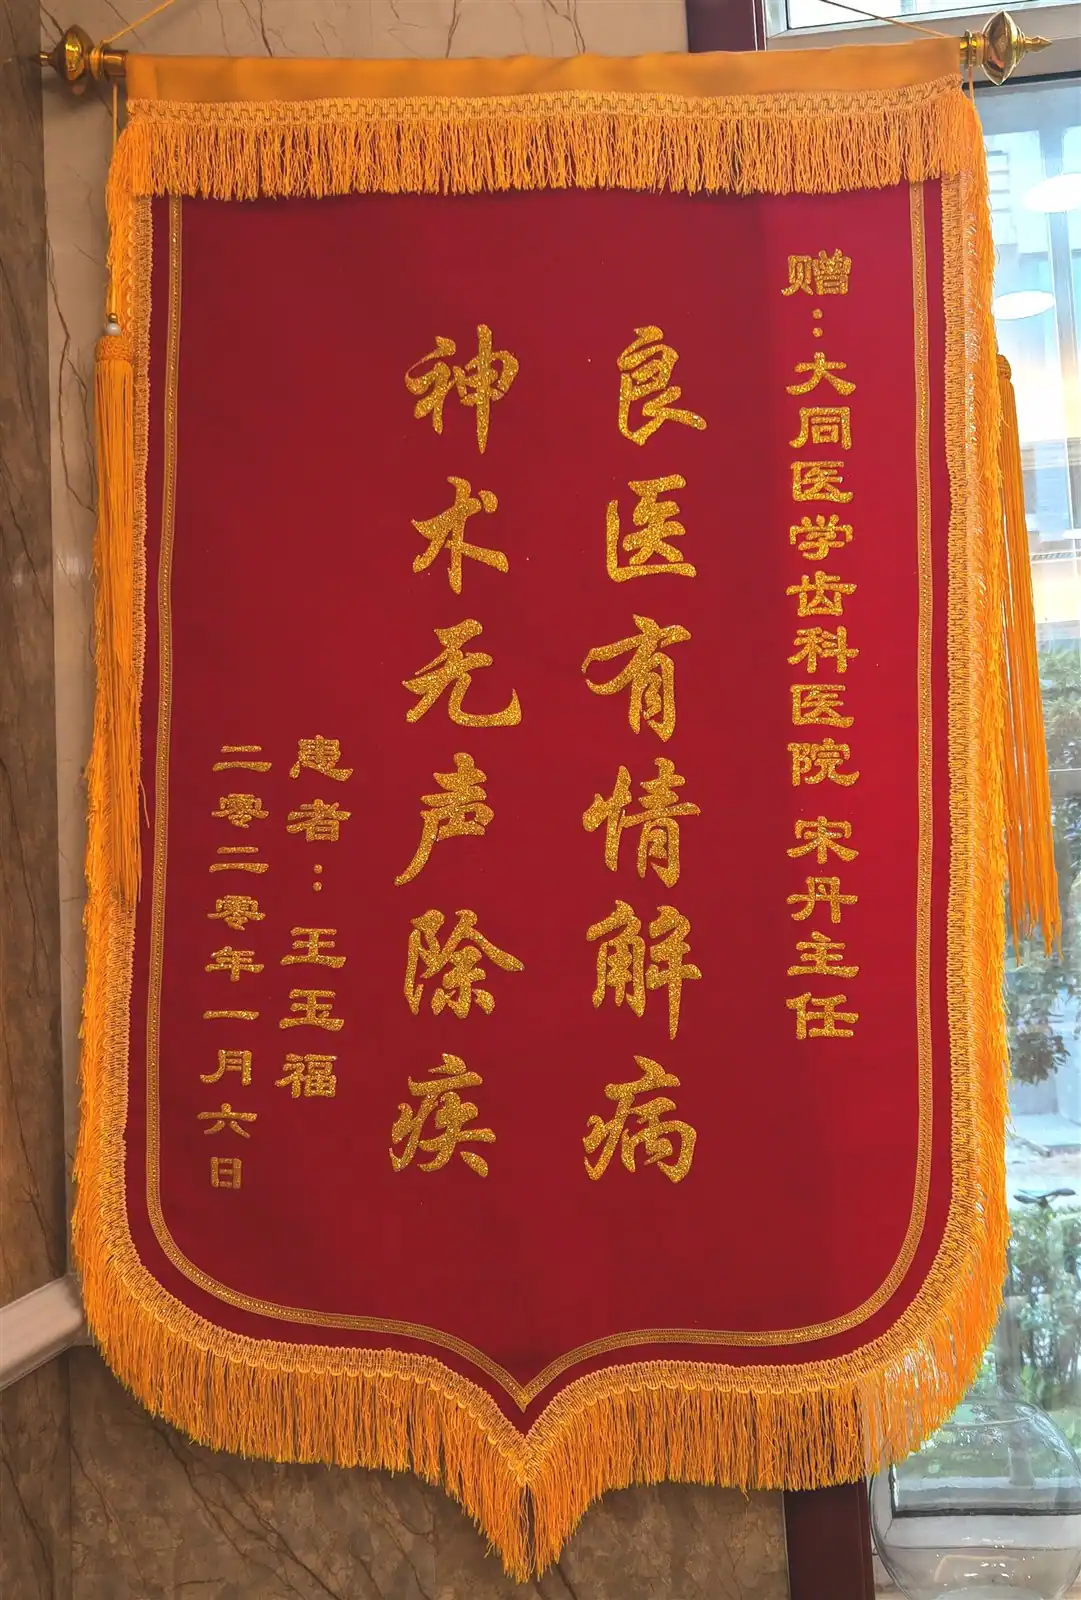 赠：大同医学齿科医院 宋丹主任
良医有情解病
神术无声除疾
患者：王玉福
二零二零年一月六日